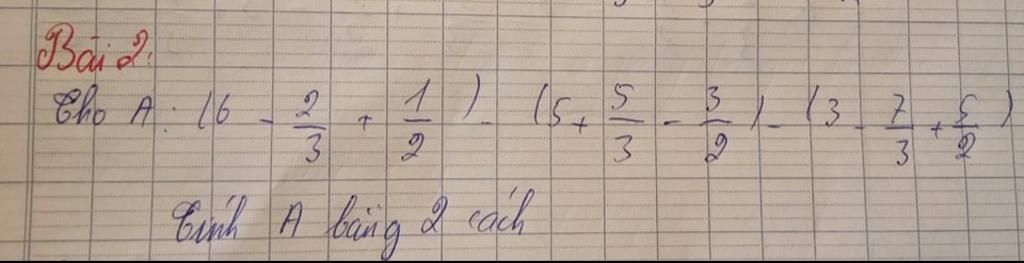 Bài 2:
Cho A: (6 - 2/3 + 1/2) - (5 + 5/3 - 3/2) - (3 - 7/3 + 5/2)
Tính A bằng 2 cách